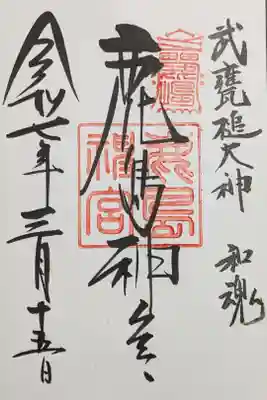 武甕槌大神 和魂
鹿島神宮
鹿島
神宮
令和七年三月十五日